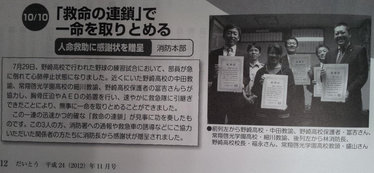 10/10
「救命の連鎖」で
一命を取りとめる
人命救助に感謝状を贈呈　消防本部
7月29日、野崎高校で行われた野球の練習試合において、部員が急
に倒れて心肺停止状態になりました。近くにいた野崎高校の中田教
諭、常翔啓光学園高校の細川教諭、野崎高校保護者の冨吉さんらが
協力し、胸骨圧迫やAEDの処置を行い、速やかに救急隊に引継ぎ
できたことにより、無事に一命を取りとめることができました。
この一連の迅速かつ的確な「救命の連鎖」が見事に功を奏したも
のです。この3人の方、消防署への通報や救急車の誘導などにご協力
いただいた関係者の方たちに消防長から感謝状が贈呈されました。
●前列左から野崎高校・中田教諭、野崎高校保護者・冨吉さん、
常翔啓光学園高校・細川教諭、後列左から林消防長、
野崎高校校長・福永さん、常翔啓光学園高校教頭・盛山さん
12　だいとう　平成24（2012）年11月号